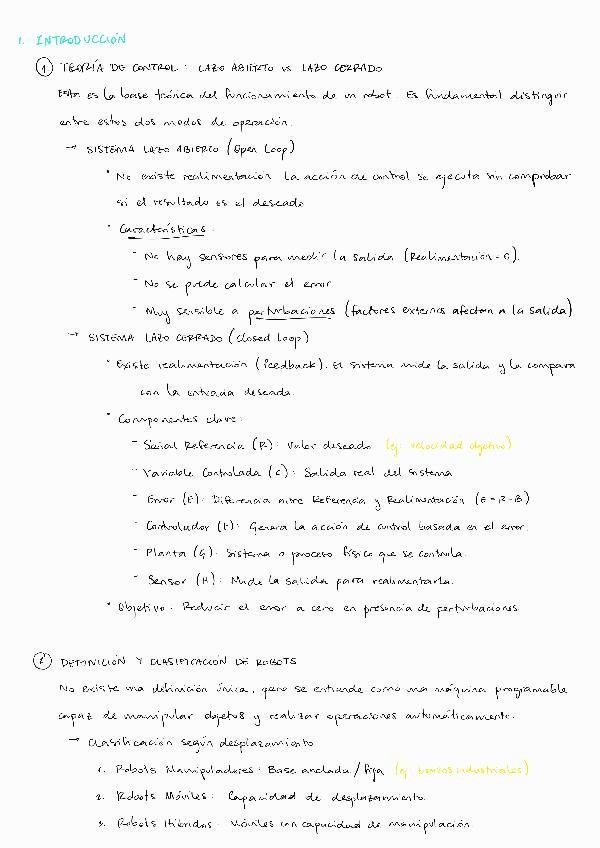 1. INTRODUCCIÓN
1 TEORÍA DE CONTROL: LAZO ABIERTO vs LAZO CERRADO
Esta es la base teórica del funcionamiento de un robot. Es fundamental distinguir
entre estos dos modos de operación.
→ SISTEMA LAZO ABIERTO (Open Loop)
• No existe realimentación. La acción de control se ejecuta sin comprobar
si el resultado es el deseado.
• Características:
- No hay sensores para medir la salida (Realimentación = 0).
- No se puede calcular el error.
- Muy sensible a perturbaciones (factores externos afectan a la salida)
→ SISTEMA LAZO CERRADO (Closed Loop)
• Existe realimentación (feedback). El sistema mide la salida y la compara
con la entrada deseada.
• Componentes clave:
- Señal Referencia (R): Valor deseado (ej: velocidad objetivo)
- Variable Controlada (C): Salida real del sistema
- Error (E): Diferencia entre Referencia y Realimentación (E = R - B)
- Controlador (F): Genera la acción de control basada en el error.
- Planta (G): Sistema o proceso físico que se controla.
- Sensor (H): Mide la salida para realimentarla.
• Objetivo: Reducir el error a cero en presencia de perturbaciones
2 DEFINICIÓN Y CLASIFICACIÓN DE ROBOTS
No existe una definición única, pero se entiende como una máquina programable
capaz de manipular objetos y realizar operaciones automáticamente.
→ Clasificación según desplazamiento
1. Robots Manipuladores: Base anclada/fija (ej: brazos industriales)
2. Robots Móviles: Capacidad de desplazamiento.
3. Robots Híbridos: Móviles con capacidad de manipulación